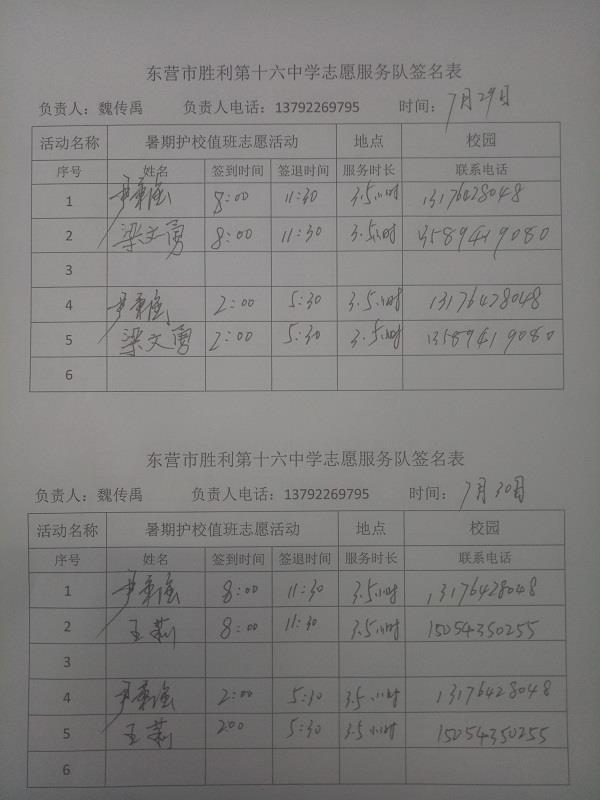 东营市胜利第十六中学志愿服务队签名表
负责人：魏传禹 负责人电话：13792269795 时间：7月29日
活动名称 暑期护校值班志愿活动 地点 校园
序号 姓名 签到时间 签退时间 服务时长 联系电话
1 8:00 11:30 3.5小时 13176428048
2 梁文勇 8:00 11:30 3.5小时 13589419080
3
4 2:00 5:30 3.5小时 13176428048
5 梁文勇 2:00 5:30 3.5小时 13589419080
6
东营市胜利第十六中学志愿服务队签名表
负责人：魏传禹 负责人电话：13792269795 时间：7月30日
活动名称 暑期护校值班志愿活动 地点 校园
序号 姓名 签到时间 签退时间 服务时长 联系电话
1 8:00 11:30 3.5小时 13176428048
2 王莉 8:00 11:30 3.5小时 15054350255
3
4 2:00 5:30 3.5小时 13176428048
5 王莉 200 5:30 3.5小时 15054350255
6